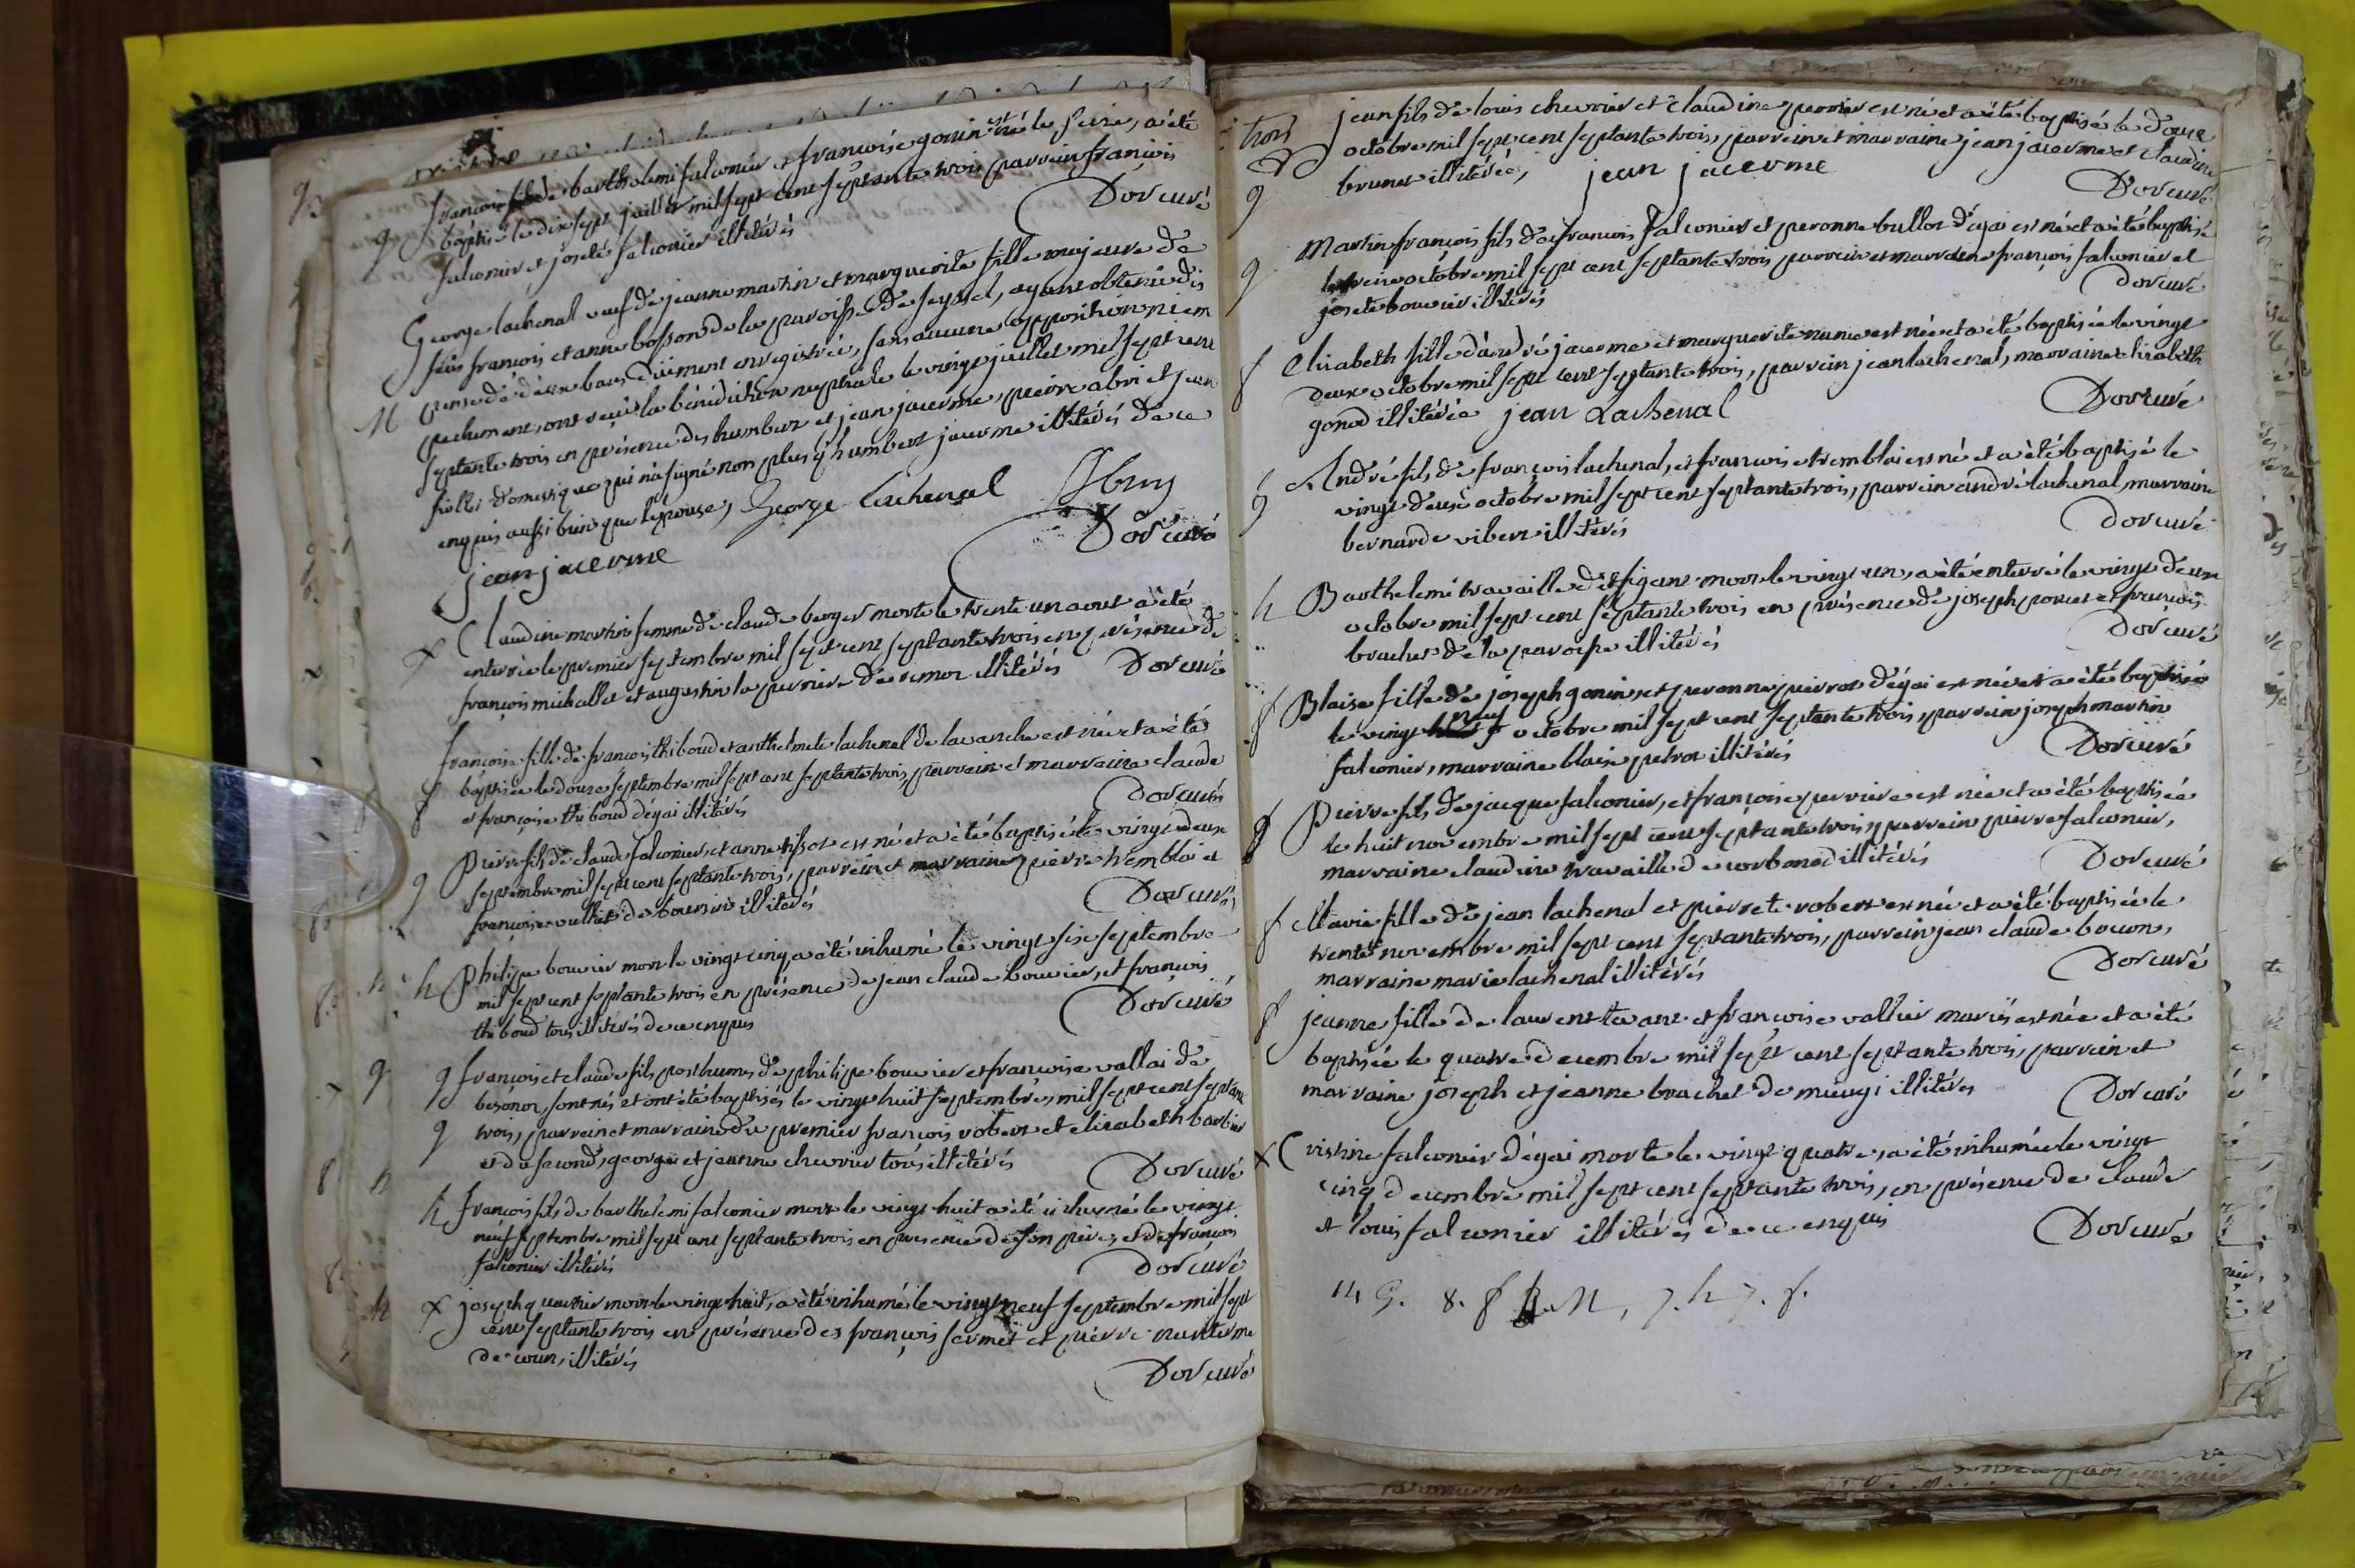 françois fils de bartholemi falconier et françoise gonin né le seize, a été
g baptisé le dix sept juillet mil sept cent septante trois parrein françois
falconier et joseté falconier illiterés
Dor curé
George lachenal veuf de jeanne martin et marguerite fille majeure de
feus françois et anne bosson de la paroisse de seyssel, ayant obtenu dis
M pense de deux bans duement enregistrée, sans aucune opposition ni em
pechement, ont reçu la bénédiction nuptiale le vingt juillet mil sept cent
septante trois en présence des humbert et jean jacerme, pierre abri et jean
follet domestique qui n'a signé non plus q'humbert jacerme illiterés de ce
enquis aussi bien que l'epouse, George Lachenal Abry
jean jacerme Dor curé
x Claudine martin femme de claude berger morte le trente un aout a été
enterrée le premier septembre mil sept cent septante trois en présence de
françois michallet et augustin la perriere de remoz illitérés Dor curé
françoise fille de françois thiboud et anthelmete lachenal de lavanche est née et a été
f baptisée le douze septembre mil sept cent septante trois, parrein et marraine claude
et françoise thiboud dégai illitérés Dor curé
g Pierre fils de claude falconier, et anne tissot est né et a été baptisé le vingt deux
septembre mil sept cent septante trois, parrein et marraine pierre tremblai et
françoise vulliet de bournir illiterés Dor curé
h Philipe bouvier mort le vingt cinq a été inhumé le vingt six septembre
mil sept cent septante trois en présence de jean claude bouvier, et françois
thiboud tous illiterés de ce enquis Dor curé
g françois et claude fils posthumes de philipe bouvier et françoise vallai de
besonoz, sont nés et ont été baptisés le vingt huit septembre, mil sept cent septante
g trois, parrein et marraine du premier françois robert et elizabeth barbier
et du second, george et jeanne chevrier tous illitérés Dor curé
h françois fils de barthelemi falconier mort le vingt huit a été inhumé le vingt
neuf septembre mil sept cent septante trois en présence de son père, et de françois
falconier illitérés Dor curé
x joseph quartier mort le vingt huit, a été inhumé le vingt neuf septembre mil sept
cent septante trois en présence des françois sermet et pierre nanterme
de coun, illitérés
Dor curé
trois jean fils de louis chevrier et claudine perrier est né et a été baptisé le douze
octobre mil sept cent septante trois, parrein et marraine jean jacerme et claudine
g brunet illitérée, jean jacerme Dor curé
Martin françois fils de françois falconier et peronne bullot d'égai est né et a été baptisé
g le treize octobre mil sept cent septante trois parrein et marraine françois falconier et
josete bouvier illitérés Dor curé
f Elizabeth fille d'andré jacerme et marguerite nunce est née et a été baptisée le vingt
deux octobre mil sept cent septante trois, parrein jean lachenal, marraine elizabeth
gonod illitérée jean Lachenal Dor curé
g André fils de françois lachenal, et françoise tremblai est né et a été baptisé le
vingt deux octobre mil sept cent septante trois, parrein andré lachenal, marraine
bernarde vibert illitérés Dor curé
h Barthelemi travaille d'assigent mort le vingt un, a été enterré le vingt deux
octobre mil sept cent septante trois en présence de joseph poncet et françois
brachet de la paroisse illitérés Dor curé
f Blaise fille de joseph gonin, et peronne peirot d'égai est née et a été baptisée
le vingt neuf octobre mil sept cent septante trois, parrein joseph martin
falconier, marraine blaise petrot illitérés Dor curé
g Pierre fils de jacque falconier, et françoise perriere est né et a été baptisée
le huit novembre mil sept cent septante trois, parrein pierre falconier,
marraine claudine travaille de corbonod illitérés Dor curé
f Marie fille de jean lachenal et pierrete robert est née et a été baptisée le
trente novembre mil sept cent septante trois, parrein jean claude bocon,
marraine marie lachenal illitérés Dor curé
f jeanne fille de laurent tavant et françoise vallier mariés est née et a été
baptisée le quatre decembre mil sept cent septante trois, parrein et
marraine joseph et jeanne brachet de mieugi illitérés Dor curé
x Cristine falconier d'égai morte le vingt quatre, a été inhumée le vingt
cinq decembre mil sept cent septante trois, en présence de claude
et louis falconier illitérés de ce enquis Dor curé
14 G. 8. f 1. M, 7. h 7. f.